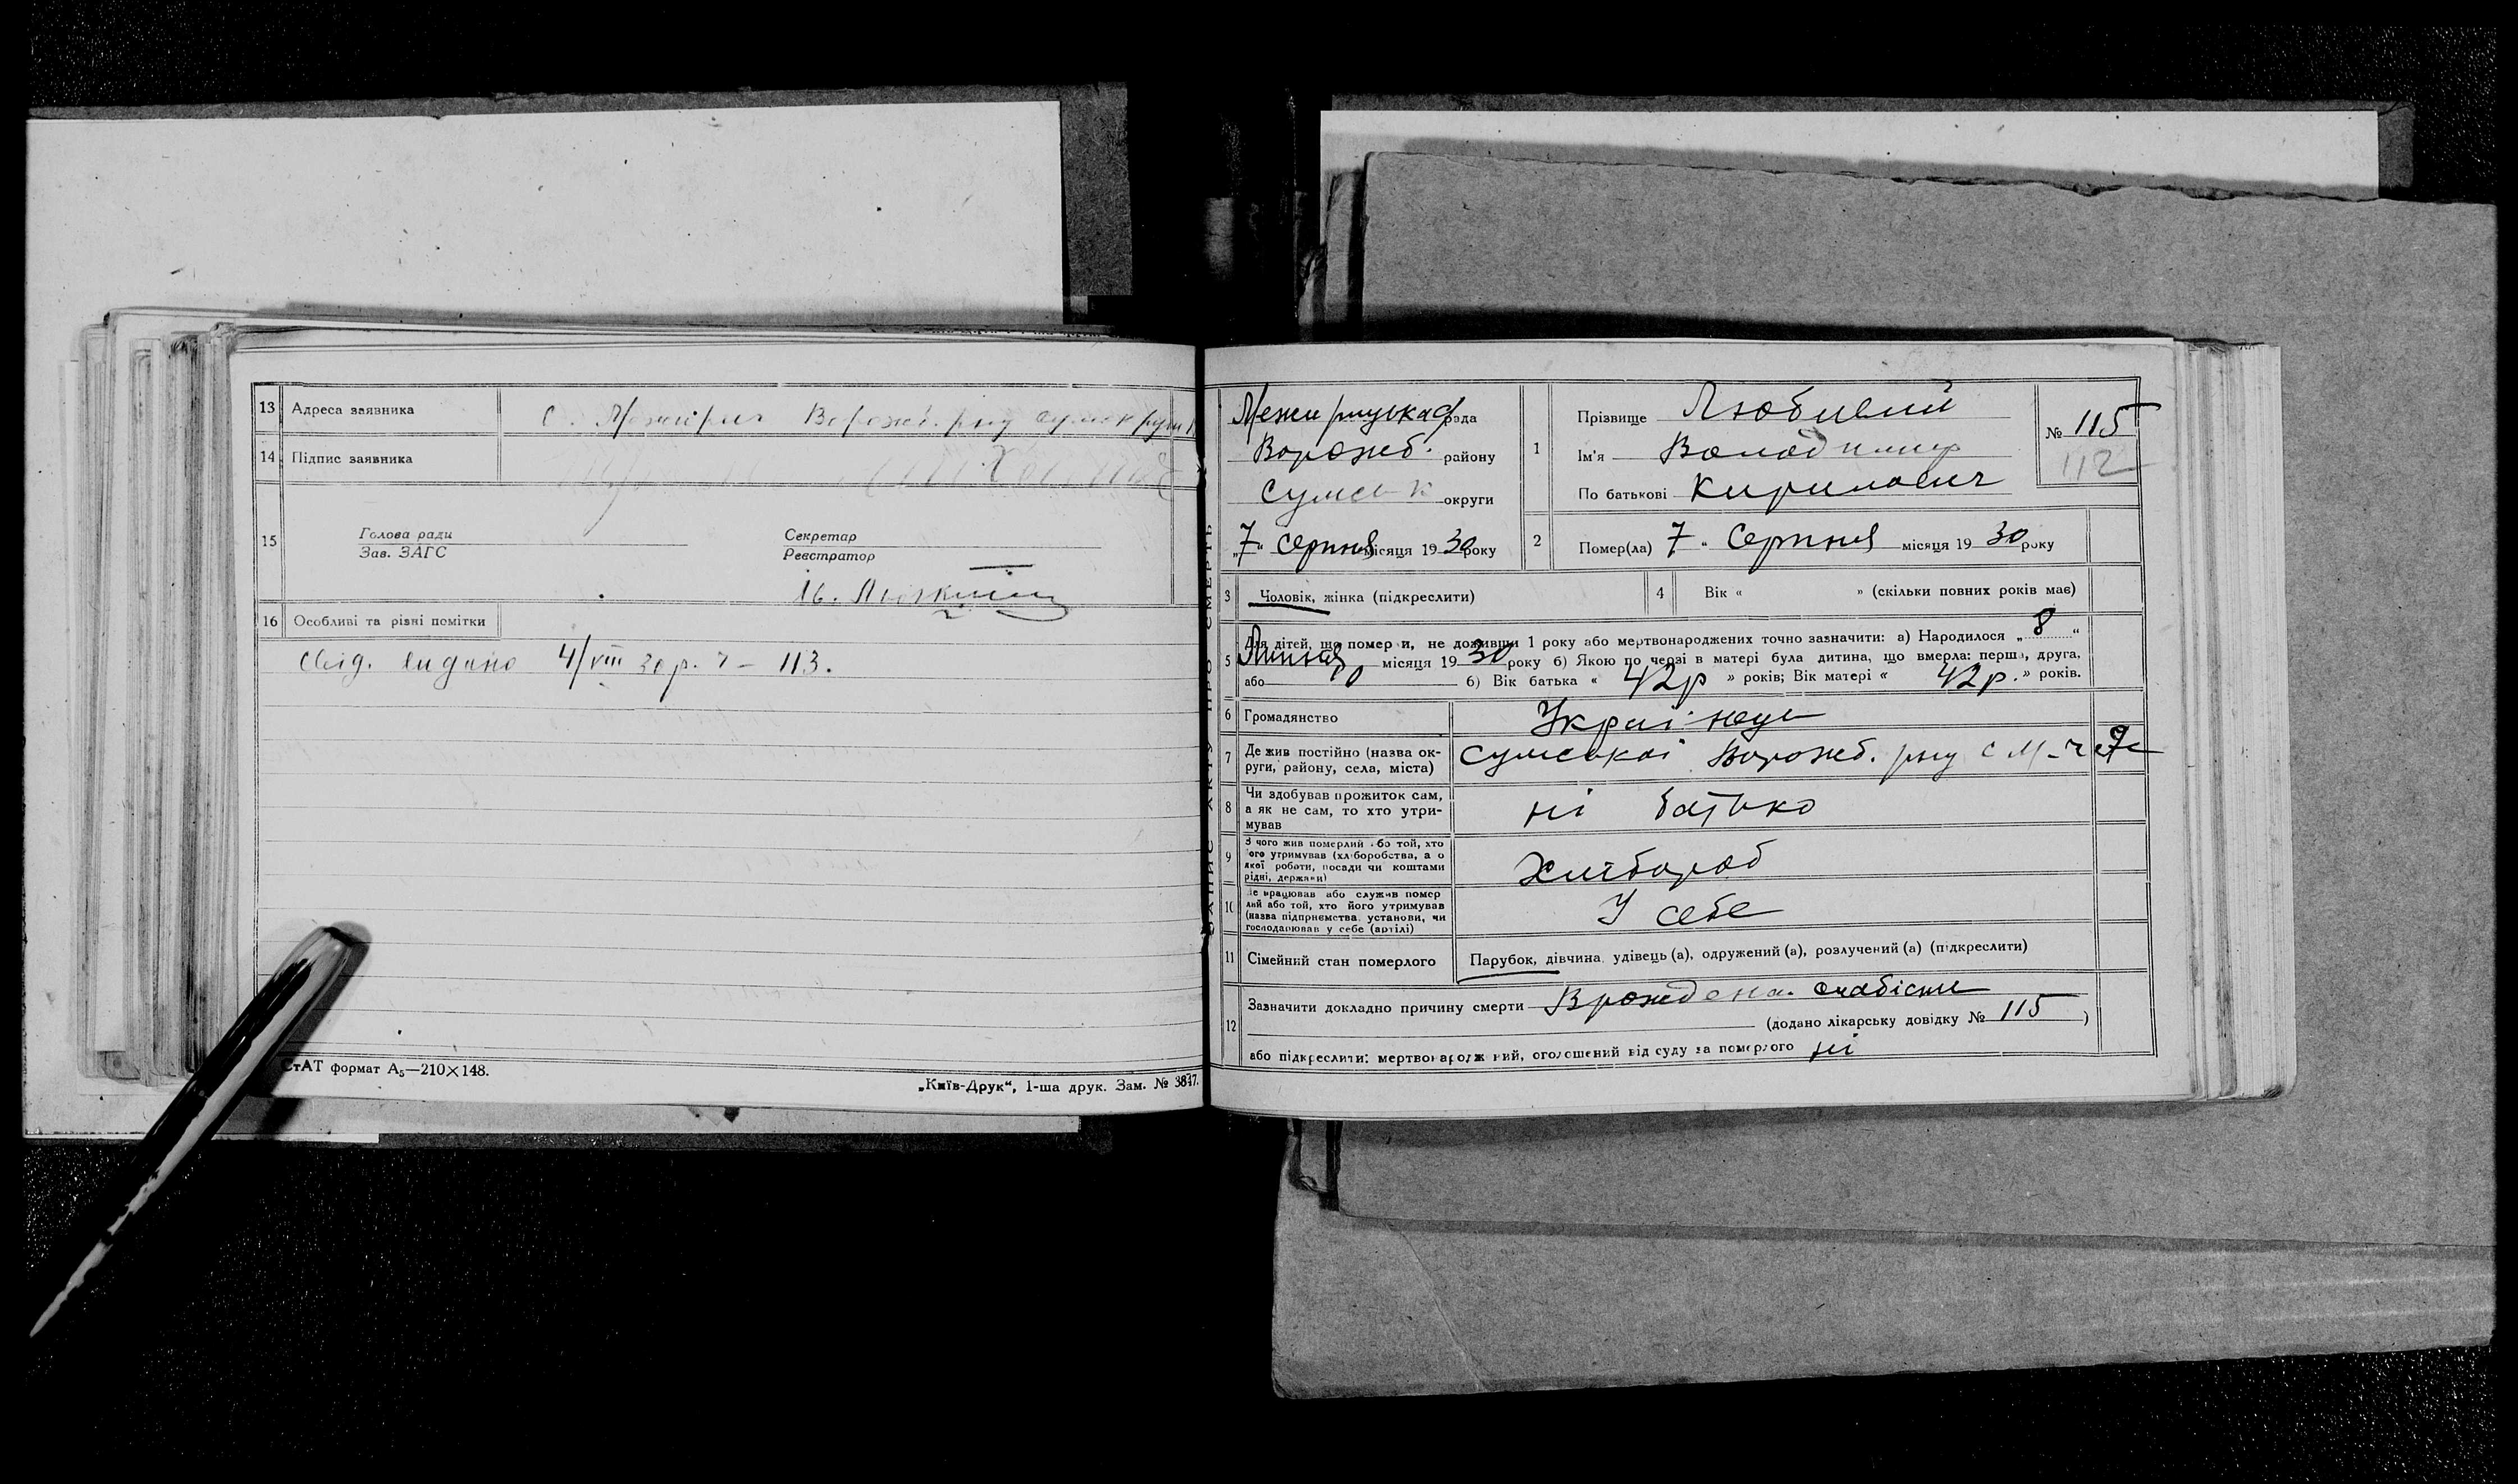 13 Адреса заявника с. Межиріч Ворожб. р-ну
14 Підпис заявника
15 Голова ради
Зав. ЗАГС
Секретар
Реєстратор
16 Особливі та різні помітки
Свід. видано 4/VIII 30 р. 113.
СтАТ формат А₅—210×148.
„Київ-Друк“, 1-ша друк. Зам. № 3847.
ЗАПИС АКТУ ПРО СМЕРТЬ
Межиріцька рада
Ворожб. району
Сумськ округи
„7“ Серпня місяця 1930 року
1 Прізвище Любивий
Ім'я Володимир
По батькові Кирилович
№ 115
112
2 Помер(ла) 7 „ Серпня місяця 1930 року
3 Чоловік, жінка (підкреслити)
4 Вік « » (скільки повних років має)
5 Для дітей, що померли, не доживши 1 року або мертвонароджених точно зазначити: а) Народилося „8“
Липня місяця 1930 року б) Якою по черзі в матері була дитина, що вмерла: перша, друга,
або 6) Вік батька « 42р » років; Вік матері « 42р. » років.
6 Громадянство Украінец
7 Де жив постійно (назва ок-
руги, району, села, міста) Сумської Ворожб. р-ну с М-ч 9
8 Чи здобував прожиток сам,
а як не сам, то хто утри-
мував ні батько
9 З чого жив померлий або той, хто
його утримував (хліборобства, а о
якої роботи, посади чи коштами
рідні, держави) Хлібороб
10 Де працював або служив помер
лий або той, хто його утримував
(назва підприємства, установи, чи
господарював у себе (артілі) У себе
11 Сімейний стан померлого Парубок, дівчина, удівець(а), одружений(а), розлучений(а) (підкреслити)
12 Зазначити докладно причину смерти Врождена слабість
(додано лікарську довідку № 115)
або підкреслити: мертвонароджений, оголошений від суду за померлого ні